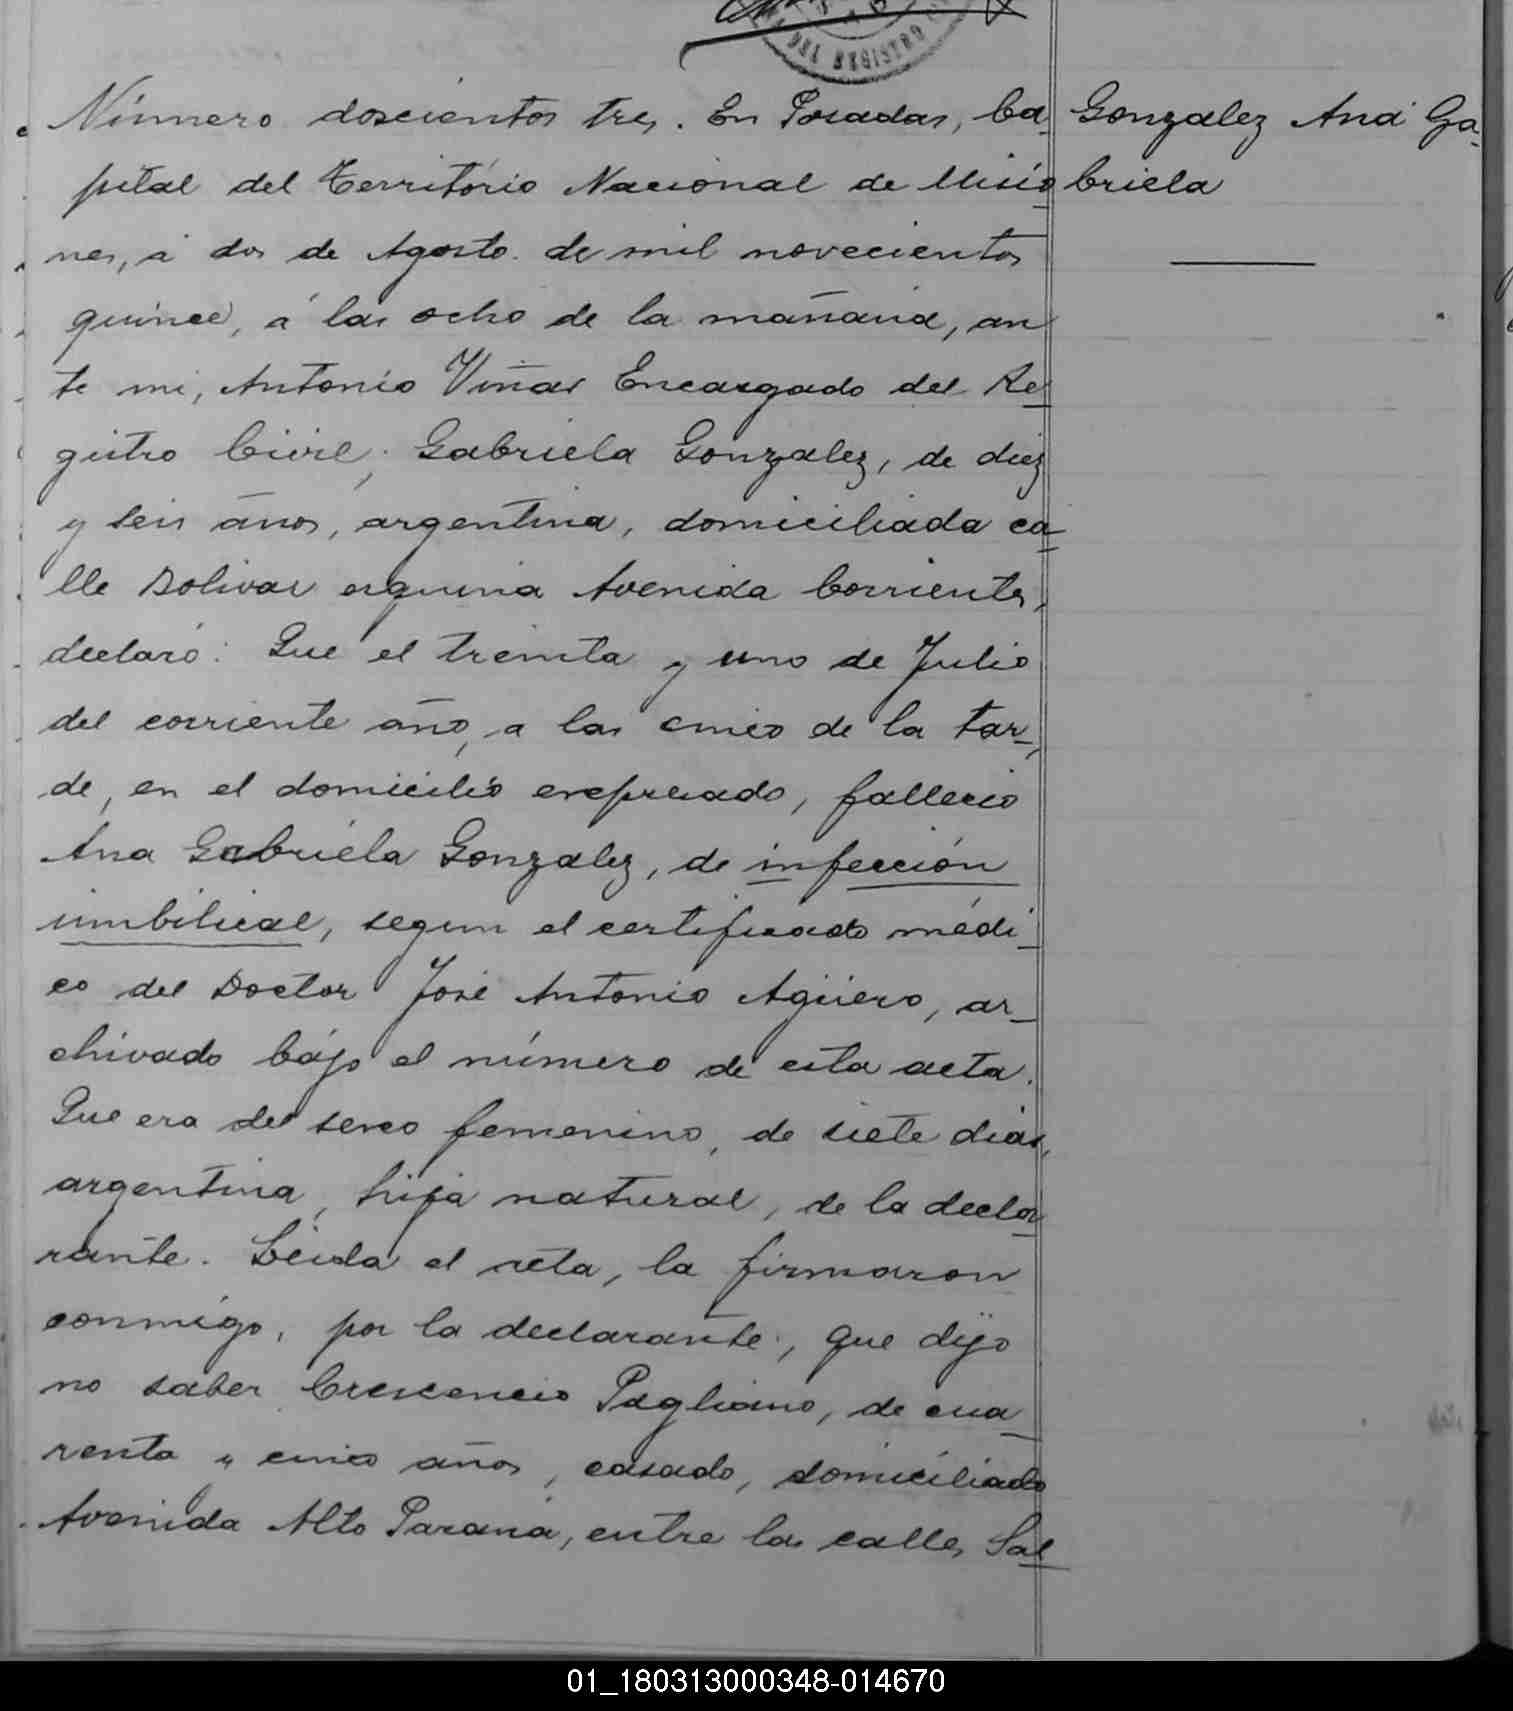 DEL REGISTRO
Número doscientos tres. En Posadas, Ca_
pital del Território Nacional de Misio_
nes, á dos de Agosto de mil novecientos
quince, á las ocho de la mañana, an
te mi, Antonio Viñas Encargado del Re_
gistro Civil; Gabriela Gonzalez, de diez
y seis años, argentina, domiciliada ca_
lle Bolivar esquina Avenida Corrientes,
declaró: Que el treinta y uno de Julio
del corriente año, a las cinco de la tar_
de, en el domicilio expresado, falleció
Ana Gabriela Gonzalez, de infección
umbilical, segun el certificado médi_
co del Doctor José Antonio Agüero, ar_
chivado bájo el número de esta acta.
Que era del sexo femenino, de siete dias,
argentina, hija natural, de la decla_
rante. Leída el acta, la firmaron
conmigo, por la declarante, que dijo
no saber Crescencio Pagliano, de cua_
renta y cinco años, casado, domiciliado
Avenida Alto Paraná, entre las calles Sal_
Gonzalez Ana Ga_
briela
01_180313000348-014670